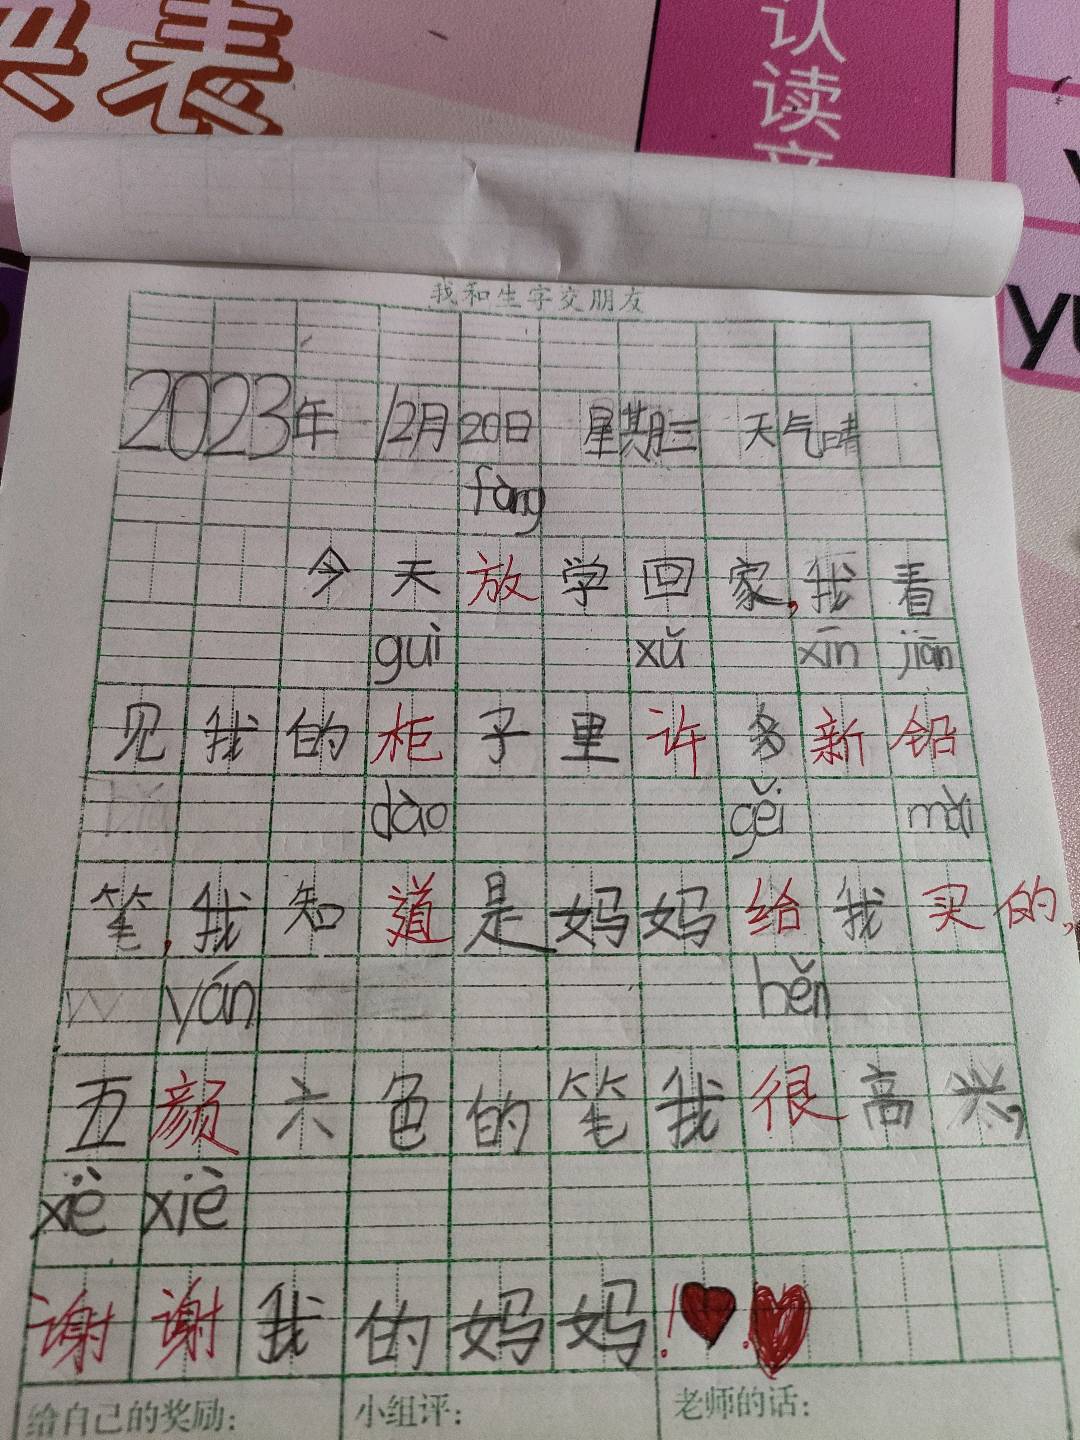 表
认
读
我和生字交朋友
2023年 12月20日 星期三 天气晴
fàng
今天放学回家,我看
guì xǔ xīn jiān
见我的柜子里许多新铅
dào gěi mǎi
笔,我知道是妈妈给我买的,
yán hěn
五颜六色的笔我很高兴,
xiè xiè
谢谢我的妈妈!
给自己的奖励: 小组评: 老师的话: